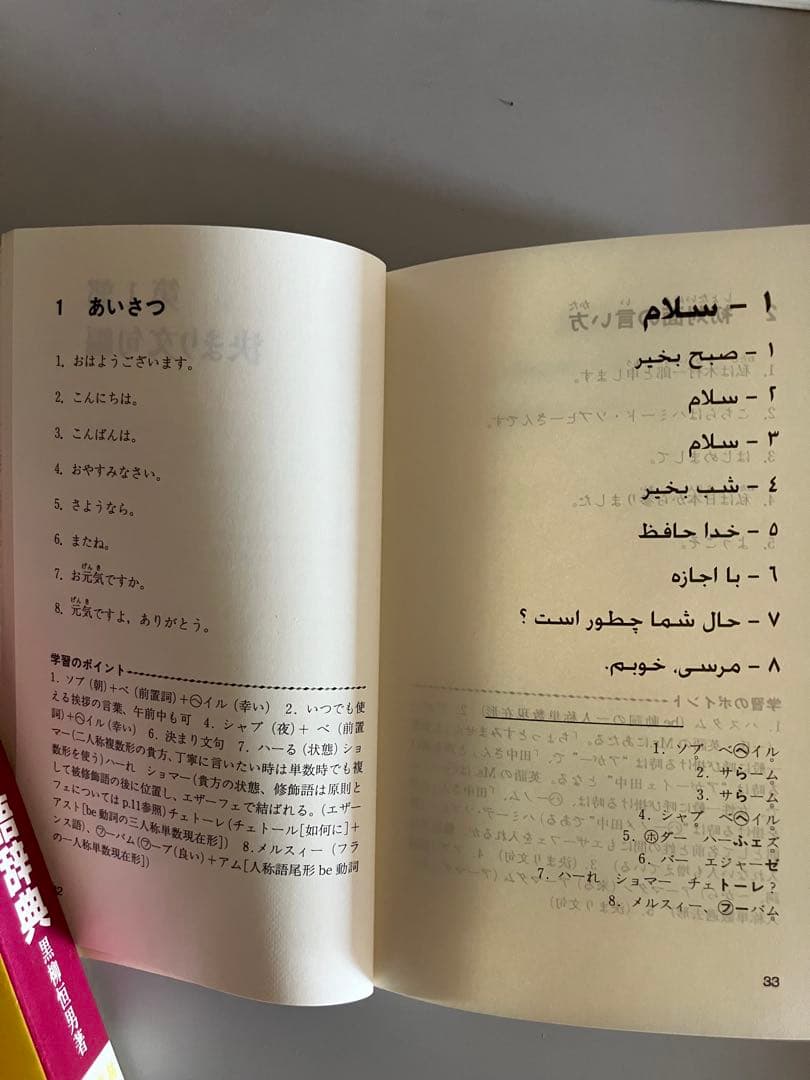 1 あいさつ
1. おはようございます。
2. こんにちは。
3. こんばんは。
4. おやすみなさい。
5. さようなら。
6. またね。
げんき
7. お元気ですか。
げんき
8. 元気ですよ, ありがとう。
学習のポイント
1. ソブ (朝)+ベ (前置詞)+㋬イル (幸い) 2. いつでも使
える挨拶の言葉、午前中も可 4. シャブ (夜)+ベ (前置
詞)+㋬イル(幸い) 6. 決まり文句 7. ハーる (状態) ショ
マー(二人称複数形の貴方、丁寧に言いたい時は単数時でも複
数形を使う) ハーれ ショマー (貴方の状態、修飾語は原則と
して被修飾語の後に位置し、エザーフェで結ばれる。(エザー
フェについては p.11参照) チェトーレ (チェトール[如何に]+
アスト[be動詞の三人称単数現在形]) 8. メルスィー (フラ
ンス語)、㋫ーバム(㋫ーブ(良い)+アム[人称語尾形 be 動詞
の一人称単数現在形])
۱ - سلام
۱ - صبح بخیر
۲ - سلام
۳ - سلام
٤ - شب بخیر
۵ - خدا حافظ
٦ - با اجازه
۷ - حال شما چطور است ؟
۸ - مرسی، خوبم.
1. ソブ ベ㋬イル。
2. サらーム。
3. サらーム。
4. シャブ ベ㋬イル。
5. ㋭ダー ハーふェズ。
6. バー エジャーゼ
7. ハーれ ショマー チェトーレ?
8. メルスィー、㋫ーバム。
33
語辞典
黒柳恒男著